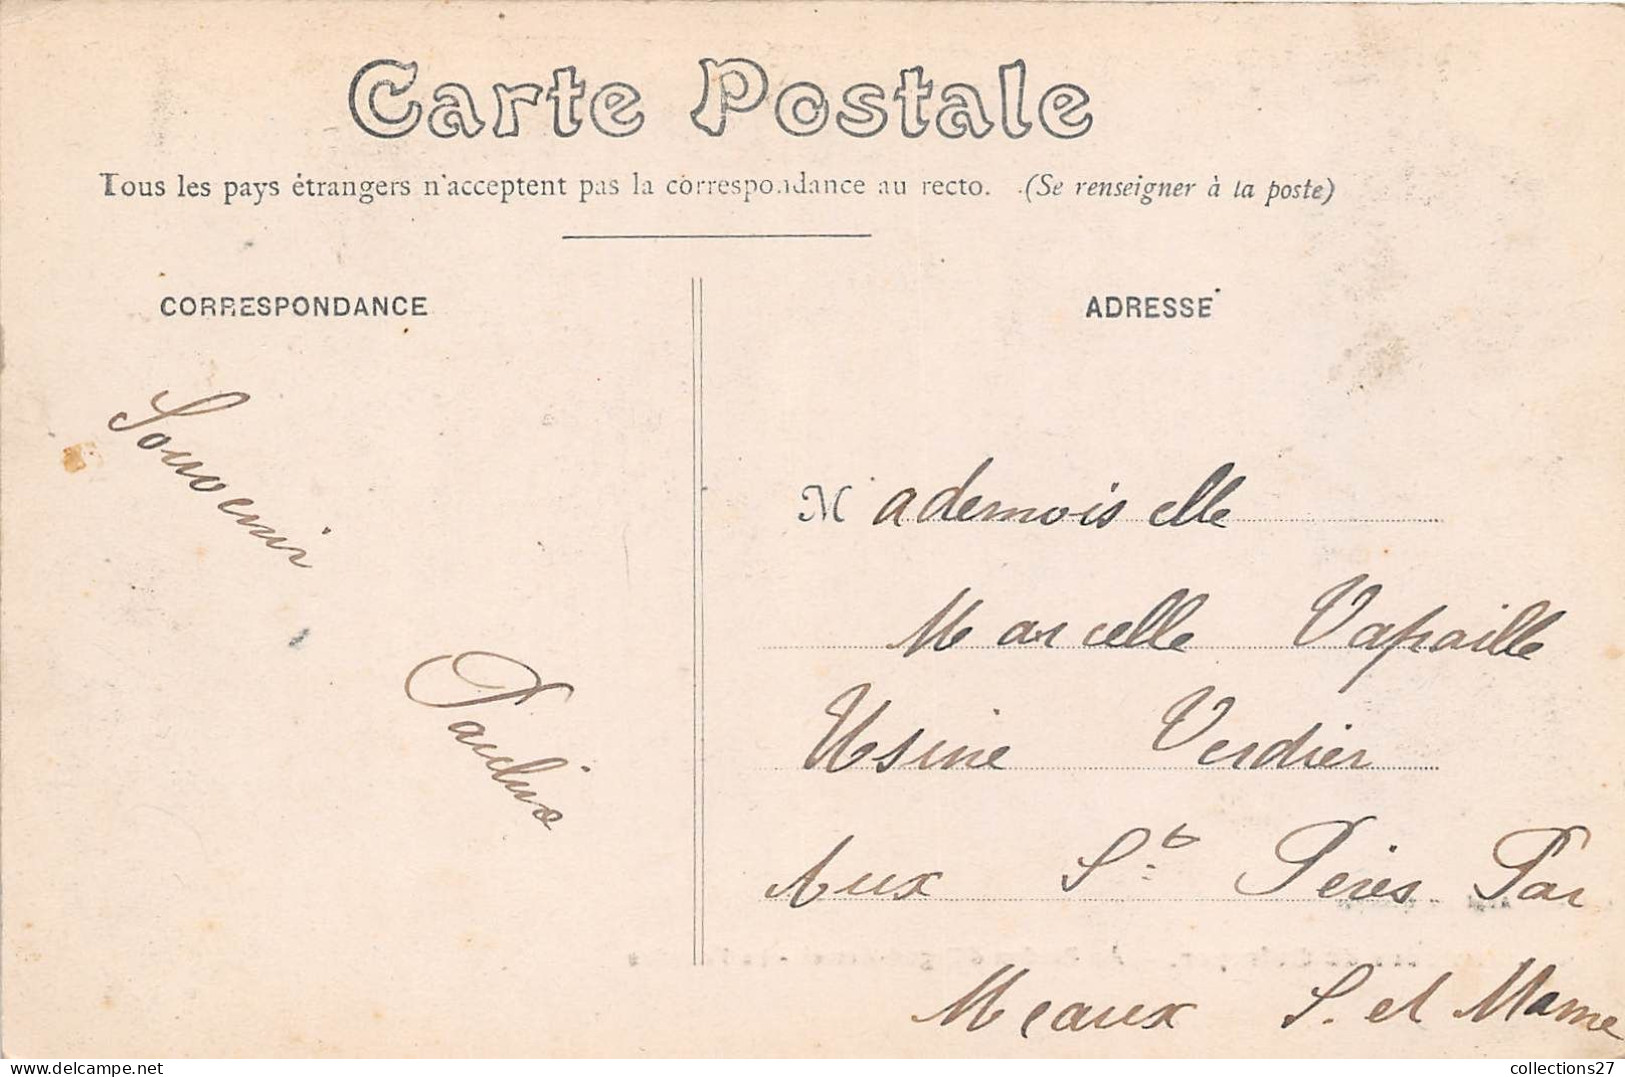 Carte Postale
Tous les pays étrangers n'acceptent pas la correspondance au recto. (Se renseigner à la poste)
CORRESPONDANCE
ADRESSE
Souvenir
M ademoiselle
Marcelle Vapaille
Usine Verdier
Aux Sts Pères Par
Meaux S. et Marne
delcampe.net
collections27